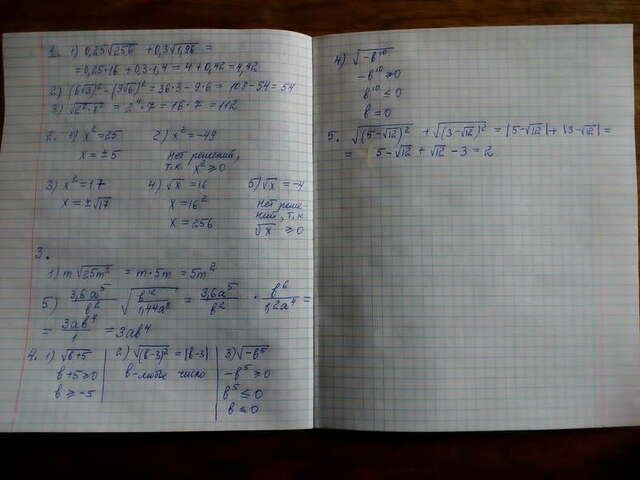 1. 1) 0,25√256 + 0,3√1,96 =
= 0,25·16 + 0,3·1,4 = 4 + 0,42 = 4,42
2) (6√3)² - (3√6)² = 36·3 - 9·6 = 108 - 54 = 54
3) = 2⁴·7 = 16·7 = 112
2. 1) x² = 25 2) x² = -49
x = ±5 нет решений,
т.к. x² ≥ 0
3) x² = 17 4) √x = 16 5) √x = -4
x = ±√17 x = 16² нет реше-
x = 256 ний, т.к
√x ≥ 0
3.
1) m√25m² = m·5m = 5m²
5) 3,6a⁵/b² √(b¹²/1,44a⁸) = 3,6a⁵/b² · b⁶/1,2a⁴ =
= 3ab⁴/1 = 3ab⁴
4. 1) √b+5 2) √(b-3)² = |b-3| 3) √-b⁵
b+5 ≥ 0 b - любое число -b⁵ ≥ 0
b ≥ -5 b⁵ ≤ 0
b ≤ 0
4) √-b¹⁰
-b¹⁰ ≥ 0
b¹⁰ ≤ 0
b = 0
5. √(5-√12)² + √(3-√12)² = |5-√12| + |3-√12| =
= 5-√12 + √12 - 3 = 2